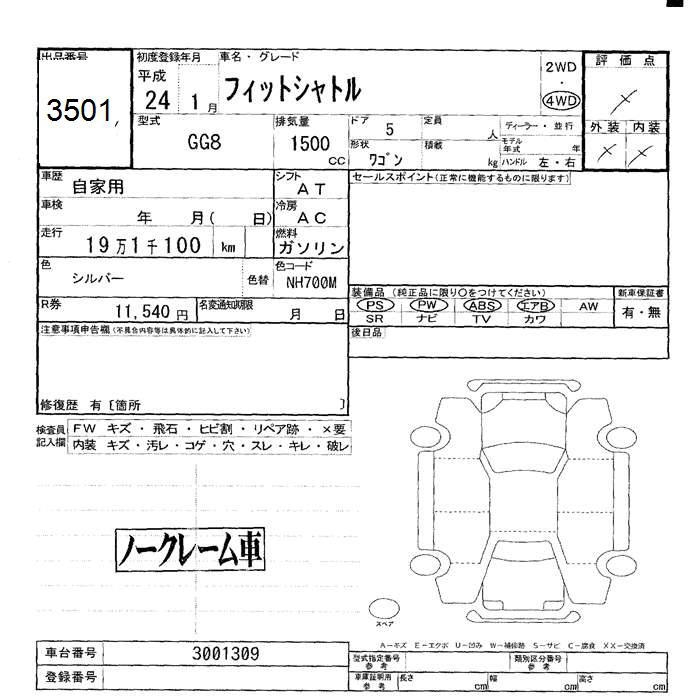 出品番号
3501
初度登録年月
平成
24 1 月
車名・グレード
フィットシャトル
2WD
・
4WD
評価点
外装 内装
型式
GG8
排気量
1500
cc
ドア
5
定員
人
ディーラー・並行
形状
ワゴン
積載
kg
モデル年式
年
ハンドル 左・右
車歴
自家用
シフト
AT
セールスポイント(正常に機能するものに限ります)
車検
年 月( 日)
冷房
AC
走行
19万1千100 km
燃料
ガソリン
色
シルバー
色替
色コード
NH700M
装備品 (純正品に限り○をつけてください)
新車保証書
PS PW ABS エアB AW
SR ナビ TV カワ
有・無
R券
11,540 円
名変通知期限
月 日
後日品
注意事項申告欄(不具合内容等は具体的に記入して下さい)
修復歴 有〔箇所 〕
検査員記入欄
FW キズ・飛石・ヒビ割・リペア跡・×要
内装 キズ・汚レ・コゲ・穴・スレ・キレ・破レ
ノークレーム車
スペア
A-キズ E-エクボ U-凹み W-補修跡 S-サビ C-腐食 XX-交換済
車台番号
3001309
登録番号
型式指定番号
参考
類別区分番号
参考
車庫証明用
参考
長さ
cm
幅
cm
高さ
cm